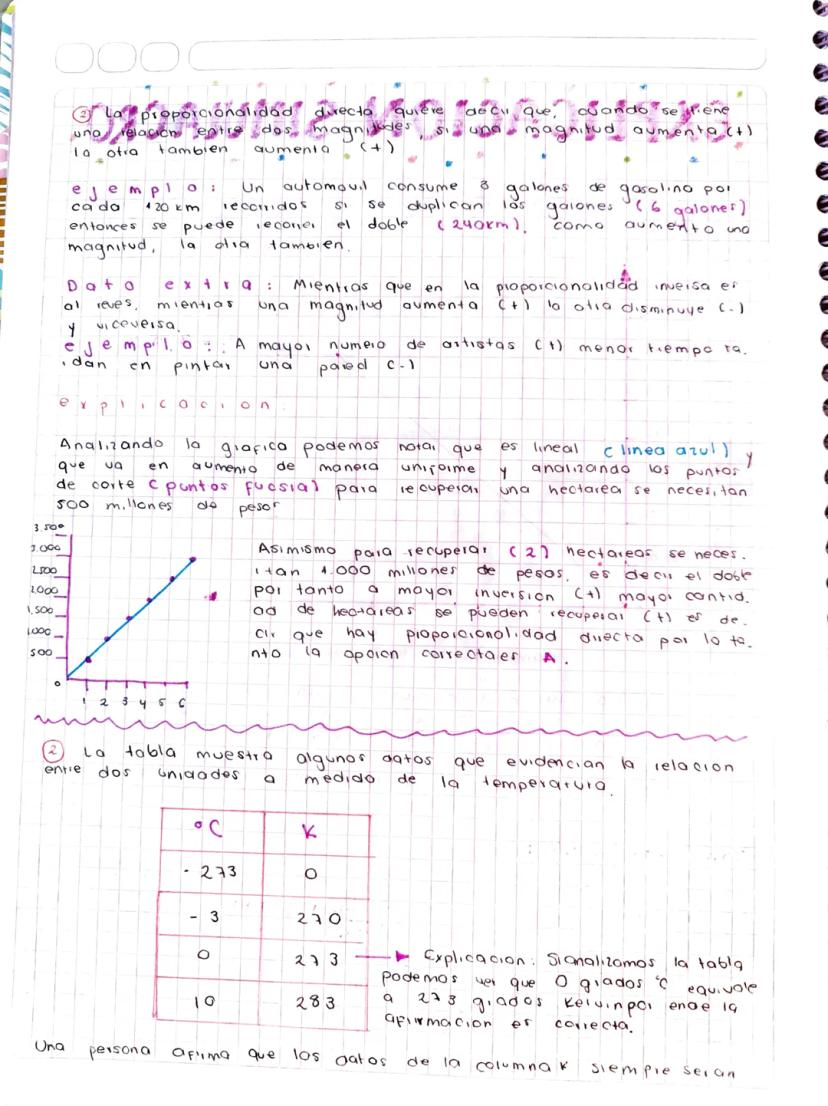 ③ La proporcionalidad directa quiere decir que, cuando se tiene
una relacion entre dos magnitudes, si una magnitud aumenta (+)
la otra tambien aumenta (+)
ejemplo: Un automovil consume 3 galones de gasolina por
cada 120 km recorridos si se duplican los galones (6 galones)
entonces se puede recorrer el doble (240km), como aumento una
magnitud, la otra tambien.
Dato extra: Mientras que en la proporcionalidad inversa es
al reves, mientras una magnitud aumenta (+) la otra disminuye (-)
y viceversa.
ejemplo: A mayor numero de artistas (+) menor tiempo ta.
.dan en pintar una pared (-)
explicacion
Analizando la grafica podemos notar que es lineal (linea azul) y
que va en aumento de manera uniforme y analizando los puntos
de corte (puntos fucsia) para recuperar una hectarea se necesitan
500 millones de pesos
3.500
3.000
2.500
2.000
1.500
1.000
500
0
1 2 3 4 5 6
Asimismo para recuperar (2) hectareas se neces.
itan 1.000 millones de pesos, es decir el doble
por tanto a mayor inversion (+) mayor cantid.
ad de hectareas se pueden recuperar (+) es de-
cir que hay proporcionalidad directa por lo ta.
nto la opcion correcta es A.
② La tabla muestra algunos datos que evidencian la relacion
entre dos unidades a medida de la temperatura.
°C K
-273 0
-3 270
0 273
10 283
Explicacion: Si analizamos la tabla
podemos ver que 0 grados °C equivale
a 273 grados Kelvin por ende la
afirmacion es correcta.
Una persona afirma que los datos de la columna K siempre seran